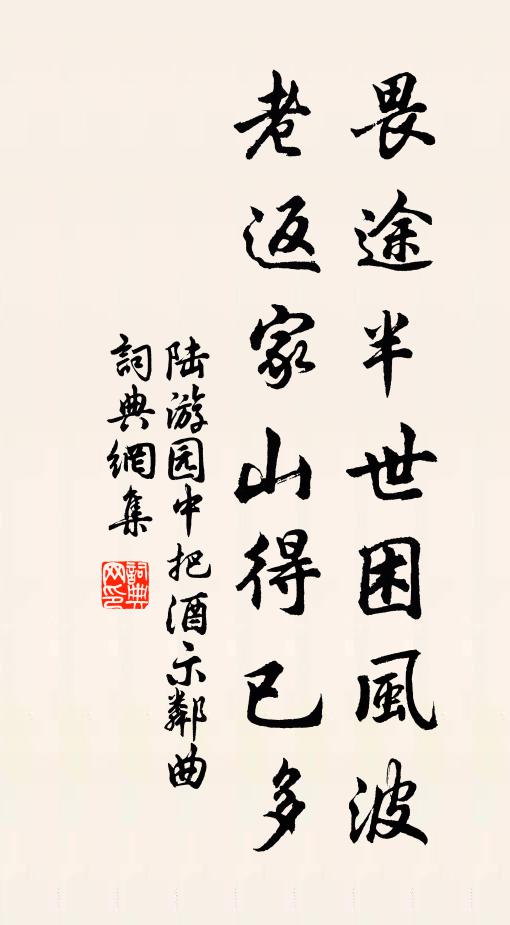 畏途半世困風波
老返家山得已多
陆游园中把酒示鄰曲
詞典網集
詞典网印